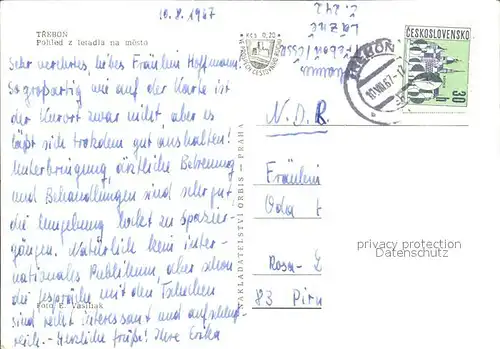 10.8.1967
TŘEBOŇ
Pohled z letadla na město
Sehr verehrtes, liebes Fräulein Hoffmann!
So großartig wie auf der Karte ist
der Kurort zwar nicht, aber es
läßt sich trotzdem gut aushalten!
Unterbringung, ärztliche Betreuung
und Behandlungen sind sehr gut
die Umgebung lockt zu Spazier-
gängen. Natürlich kein inter-
nationales Publikum, aber schon
die Gespräche mit den Tschechen
sind recht interessant und aufschluß-
reich. - Herzliche Grüße! Ihre Erika
Foto E. Vasiliak
Kčs 0,20
NAKLADATELSTVÍ ORBIS - PRAHA
Lázně
č. 242
TŘEBOŇ
10.VIII.67-17
ČESKOSLOVENSKO
30 h
N.D.R.
Fräulein
Oda
Rosa-L
83 Pirn
privacy protection
Datenschutz